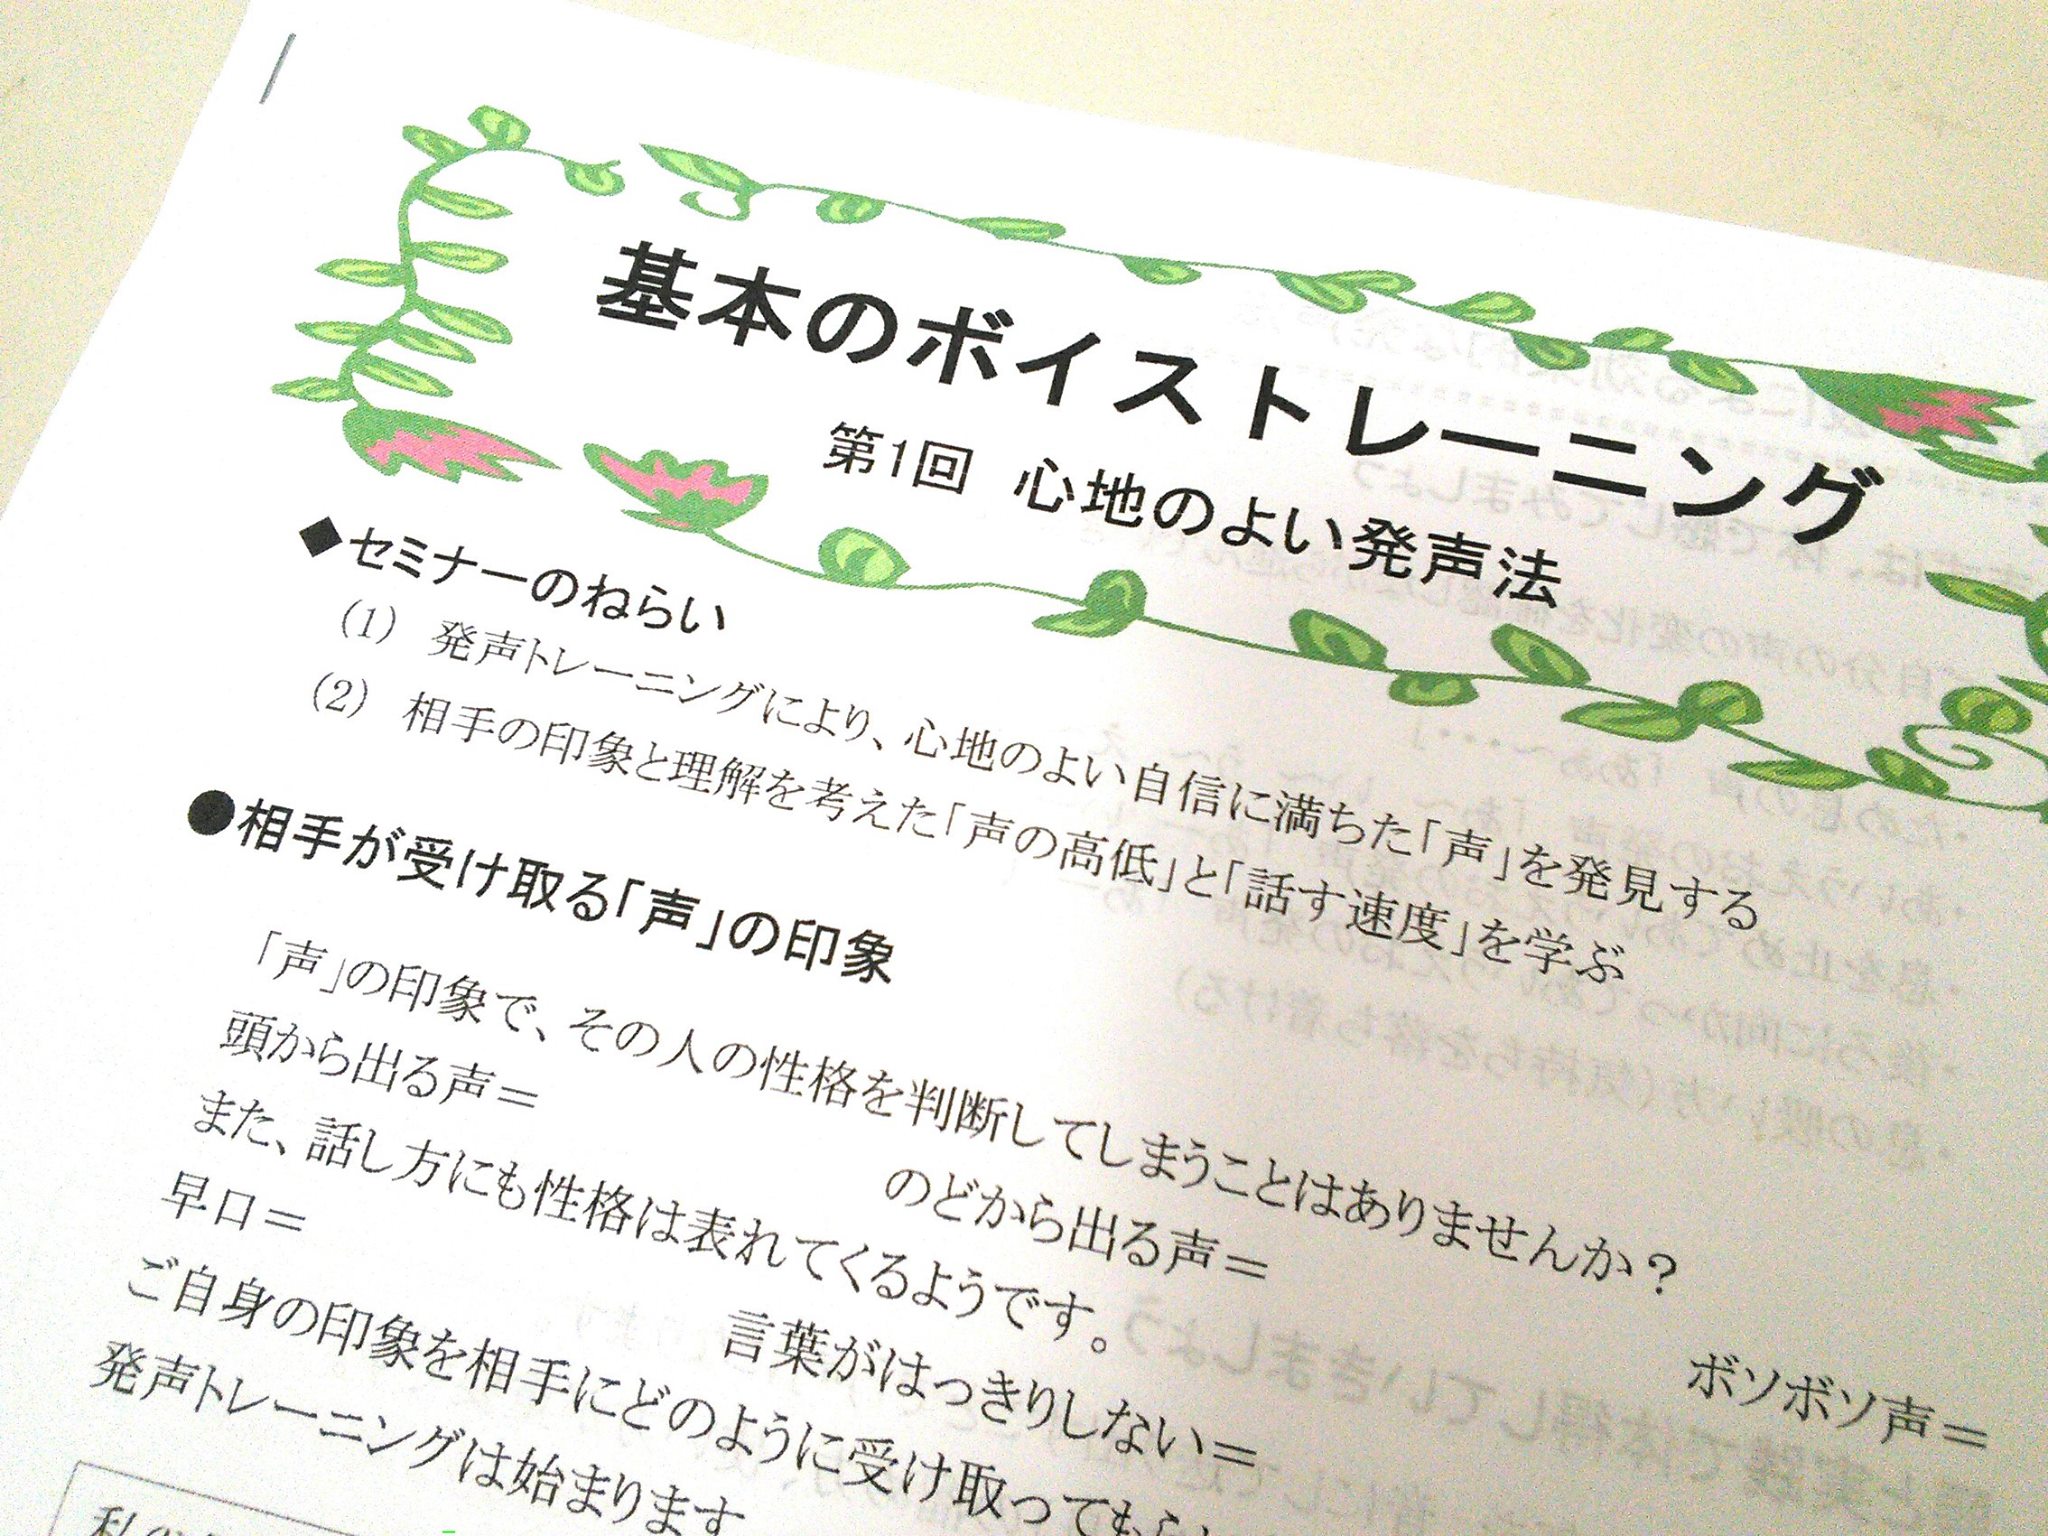 基本のボイストレーニング
第1回 心地のよい発声法
◆セミナーのねらい
(1) 発声トレーニングにより、心地のよい自信に満ちた「声」を発見する
(2) 相手の印象と理解を考えた「声の高低」と「話す速度」を学ぶ
●相手が受け取る「声」の印象
「声」の印象で、その人の性格を判断してしまうことはありませんか？
頭から出る声＝ のどから出る声＝ ボソボソ声＝
また、話し方にも性格は表れてくるようです。
早口＝ 言葉がはっきりしない＝
ご自身の印象を相手にどのように受け取っても
発声トレーニングは始まります
私の